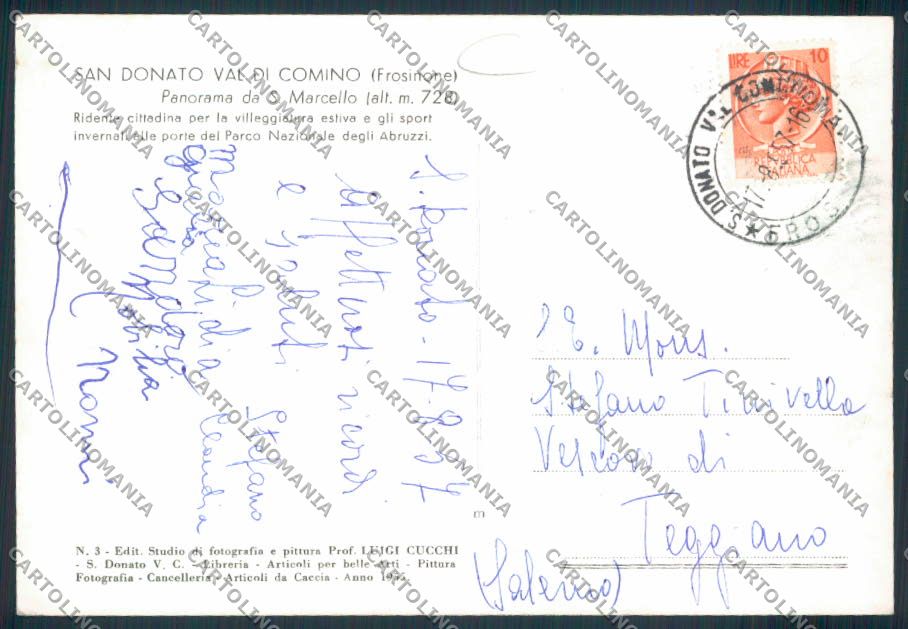 SAN DONATO VAL DI COMINO (Frosinone)
Panorama da S. Marcello (alt. m. 728)
Ridente cittadina per la villeggiatura estiva e gli sport
invernali alle porte del Parco Nazionale degli Abruzzi.
LIRE 10
ITALIA
REPUBBLICA
ITALIANA
S. DONATO VAL COMINO
FROS
S. Donato - 17-8-57
Affettuosi ricordi
e saluti
Stefano
Claudia
Nonni
S. E. Mons.
Stefano Tinivella
Vescovo di
Teggiano
(Salerno)
m
N. 3 - Edit. Studio di fotografia e pittura Prof. LUIGI CUCCHI
- S. Donato V. C. - Libreria - Articoli per belle Arti - Pittura
Fotografia - Cancelleria - Articoli da Caccia - Anno
CARTOLINOMANIA